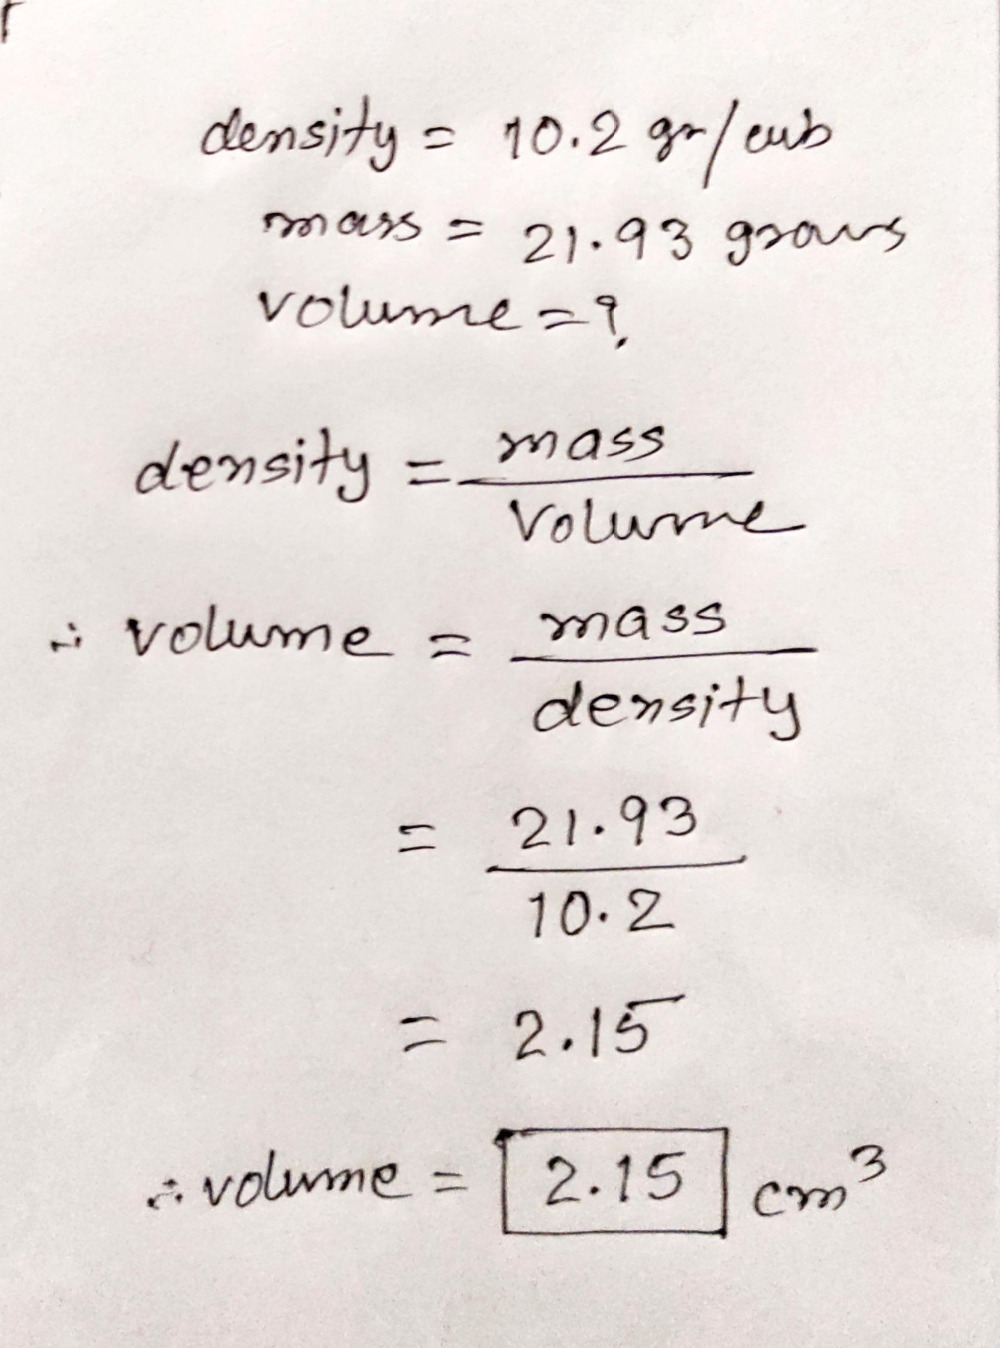 density = 10.2 gr/cub
mass = 21.93 grams
volume = ?
density = mass / Volume
∴ volume = mass / density
= 21.93 / 10.2
= 2.15
∴ volume = 2.15 cm³